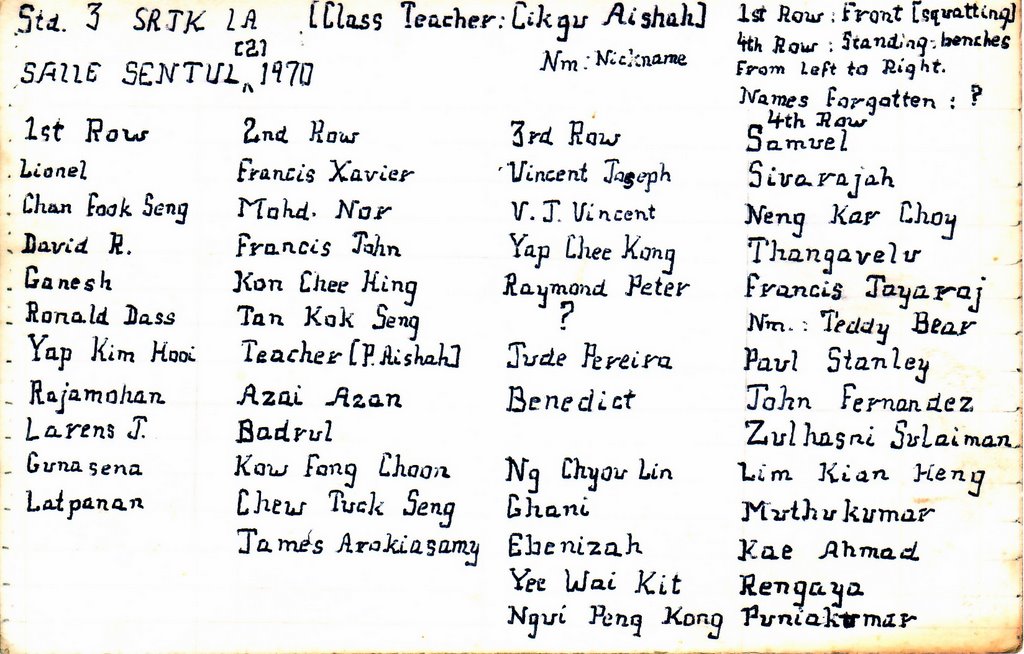 Std. 3 SRJK LA [Class Teacher: Cikgu Aishah]
SALLE SENTUL [2], 1970
Nm: Nickname
1st Row: Front [squatting]
4th Row: Standing: benches
From Left to Right.
Names Forgotten: ?
1st Row
Lionel
Chan Fook Seng
David R.
Ganesh
Ronald Dass
Yap Kim Hooi
Rajamohan
Larens J.
Gunasena
Latpanan
2nd Row
Francis Xavier
Mohd. Nor
Francis John
Kon Chee Hing
Tan Kok Seng
Teacher [P. Aishah]
Azai Azan
Badrul
Kow Fong Choon
Chew Tuck Seng
James Arokiasamy
3rd Row
Vincent Joseph
V. J. Vincent
Yap Chee Kong
Raymond Peter
?
Jude Pereira
Benedict
Ng Chyou Lin
Ghani
Ebenizah
Yee Wai Kit
Ngui Peng Kong
4th Row
Samuel
Sivarajah
Neng Kar Choy
Thangavelu
Francis Jayaraj
Nm.: Teddy Bear
Paul Stanley
John Fernandez
Zulhasni Sulaiman
Lim Kian Heng
Muthukumar
Kae Ahmad
Rengaya
Puniakumar